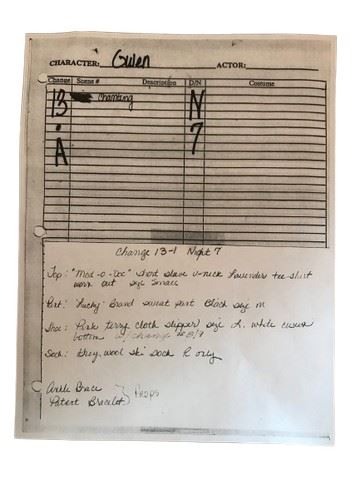 CHARACTER: Gwen ACTOR:
Change Scene # Description D/N Costume
13 Chanting N
. 7
A
Change 13-1 Night 7
Top: "Mod-o-Doc" short sleeve v-neck lavender tee-shirt
worn out size small
Pant: "Lucky" Brand sweat pant Black size m
Shoe: Pink terry cloth slipper size L. white
bottom w/ change # 8/9
Sock: Grey wool ski sock R only
Ankle Brace
Patent Bracelet } Props